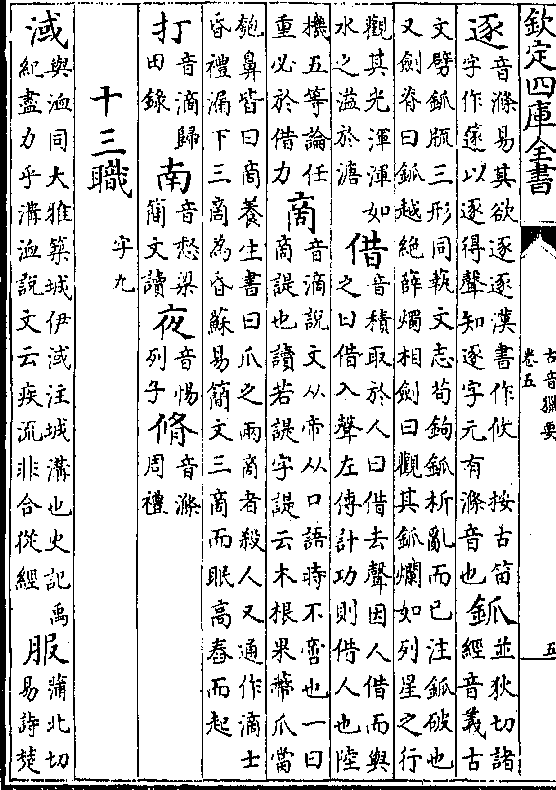 欽定四庫全書
古音獵要
卷五
五
逐音滌易其欲逐逐漢書作攸 按古笛
字作篴以逐得聲知逐字元有滌音也
釽並狄切諸
經音義古
文劈釽瓶三形同藝文志茍鉤釽析亂而已注釽破也
又劍脊曰釽越絶薛燭相劍曰觀其釽爛如列星之行
觀其光渾渾如
水之溢於溏
借音積取於人曰借去聲因人借而與
之曰借入聲左傳計功則借人也陸
機五等論任
重必於借力
啇音滴說文从帝从口語時不啻也一曰
啇諟也讀若諟字諟云木根果蔕爪當
匏鼻皆曰啇養生書曰爪之兩啇者殺人又通作滴士
昏禮漏下三啇為昏蘇易簡文三啇而眠高舂而起
打音滴歸
田錄
南音愁梁
簡文讀
夜音惕
列子
脩音滌
周禮
十三職 字九
淢與洫同大雅築城伊淢注城溝也史記禹
紀盡力乎溝洫說文云疾流非合從經
服蒲北切
易詩楚